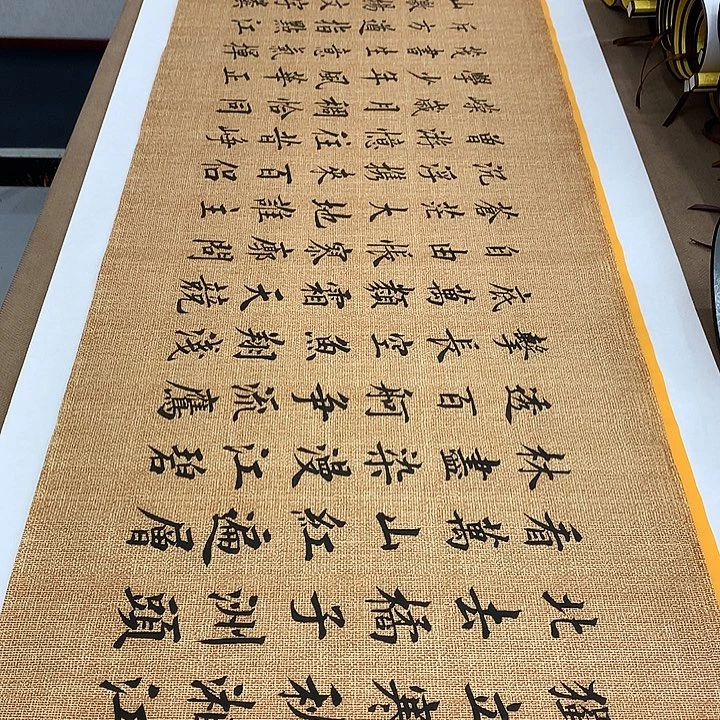 獨立寒秋湘江
北去橘子洲頭
看萬山紅遍層
林盡染漫江碧
透百舸爭流鷹
擊長空魚翔淺
底萬類霜天競
自由悵寥廓問
蒼茫大地誰主
沉浮攜來百侶
曾游憶往昔崢
嶸歲月稠恰同
學少年風華正
茂書生意氣揮
斥方遒指點江
山激揚文字糞